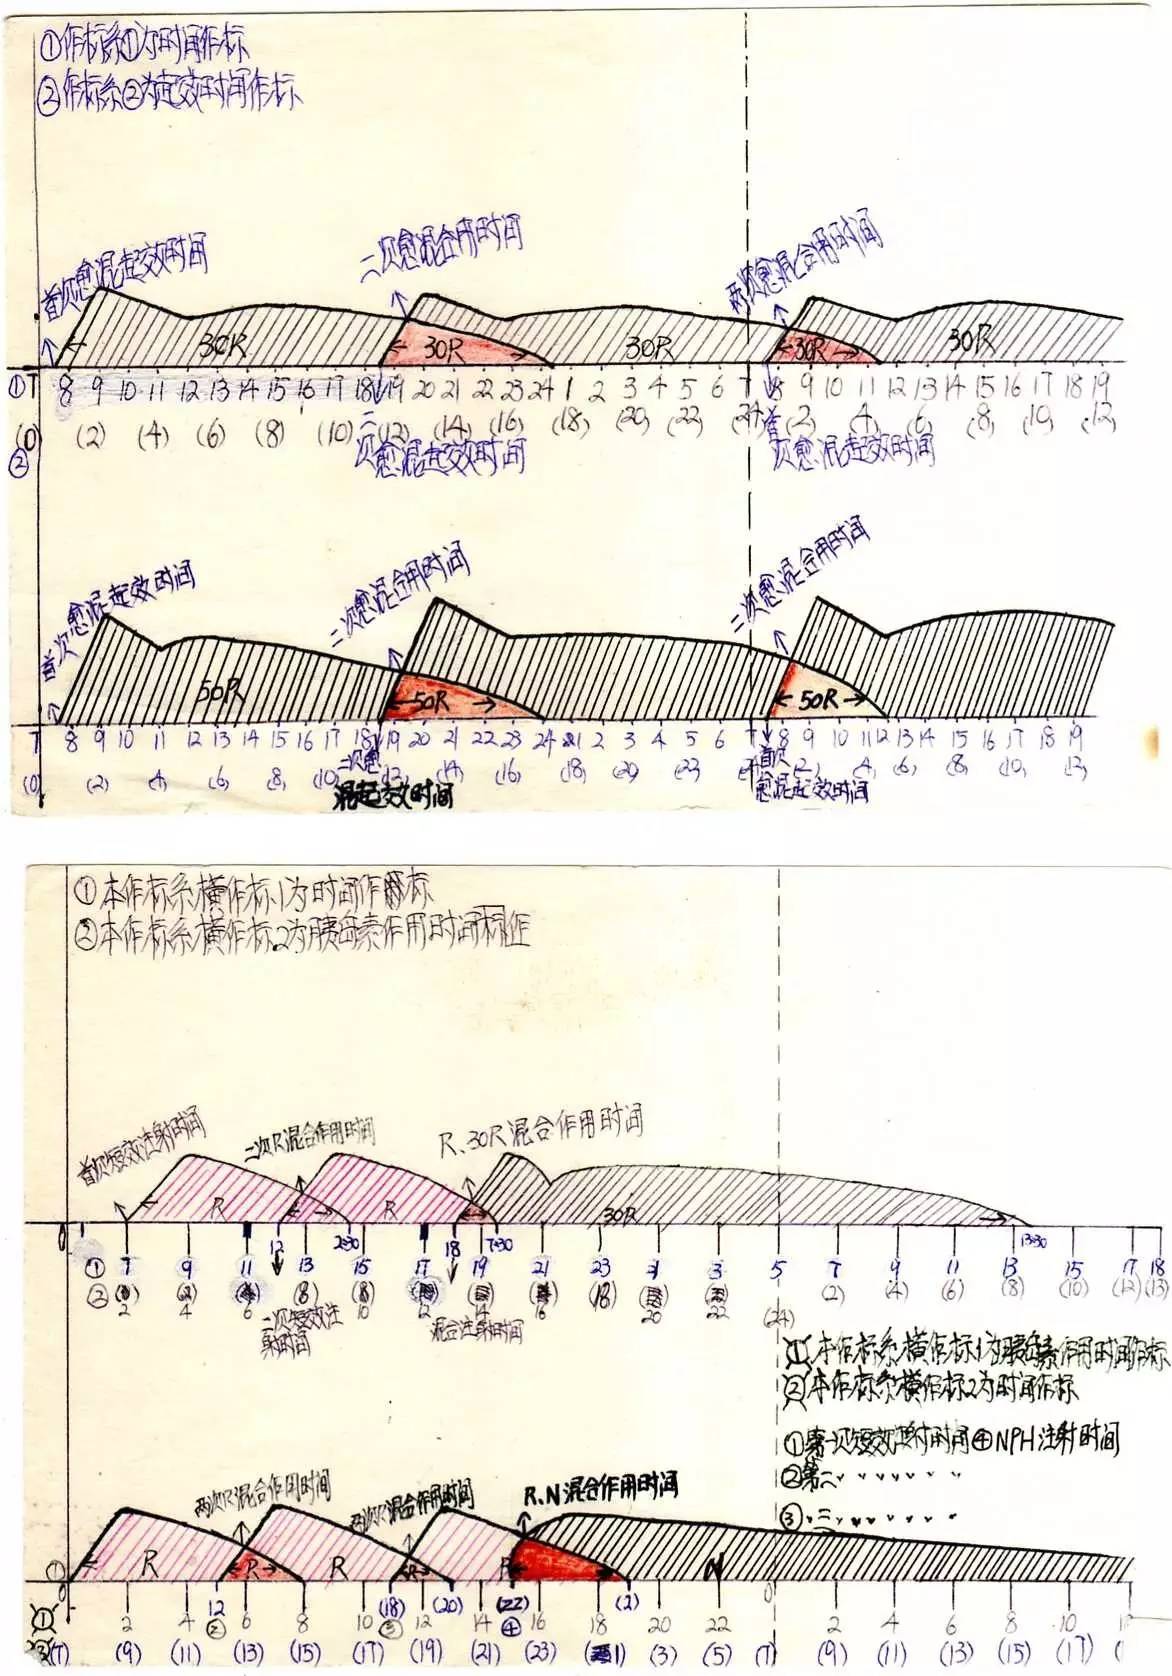 ①作标系①为时间作标
②作标系②为起效时间作标
首次愈混起效时间
二次愈混合用时间
两次愈混合用时间
30R 30R 30R 30R 30R
① T 8 9 10 11 12 13 14 15 16 17 18 19 20 21 22 23 24 1 2 3 4 5 6 7 8 9 10 11 12 13 14 15 16 17 18 19
② (0) (2) (4) (6) (8) (10) (12) (14) (16) (18) (20) (22) (24) (2) (4) (6) (8) (10) (12)
二次愈混起效时间
首次愈混起效时间
首次愈混起效时间
二次愈混合用时间
二次愈混合用时间
50R 50R 50R
T 8 9 10 11 12 13 14 15 16 17 18 19 20 21 22 23 24 1 2 3 4 5 6 7 8 9 10 11 12 13 14 15 16 17 18 19
(0) (2) (4) (6) (8) (10) (12) (14) (16) (18) (20) (22) (24) (2) (4) (6) (8) (10) (12)
二次愈混起效时间
首次愈混起效时间
①本作标系横作标1为时间作标
②本作标系横作标2为胰岛素作用时间标作
首次短效注射时间
二次R混合作用时间
R、30R混合作用时间
R R 30R
0 12 2:30 18 7:30 13:30
① 7 9 11 13 15 17 19 21 23 3 5 7 9 11 13 15 17 18
② (8) (8) (18) (24) (2) (4) (6) (8) (10) (12) (13)
2 4 6 10 12 14 16 20 22
二次短效注射时间
混合注射时间
①本作标系横作标1为胰岛素作用时间作标
②本作标系横作标2为时间作标
①第一次短效注射时间④NPH注射时间
②第二〃〃〃〃〃〃〃
③〃三〃〃〃〃〃〃〃
两次R混合作用时间
两次R混合作用时间
R、N混合作用时间
R R R R R N
0 12 (18) (20) (22) (2) 0
① 2 4 ② 6 8 10 ③ 12 14 ④ 16 18 20 22 2 4 6 8 10
(7) (9) (11) (13) (15) (17) (19) (21) (23) (1) (3) (5) (7) (9) (11) (13) (15) (17)